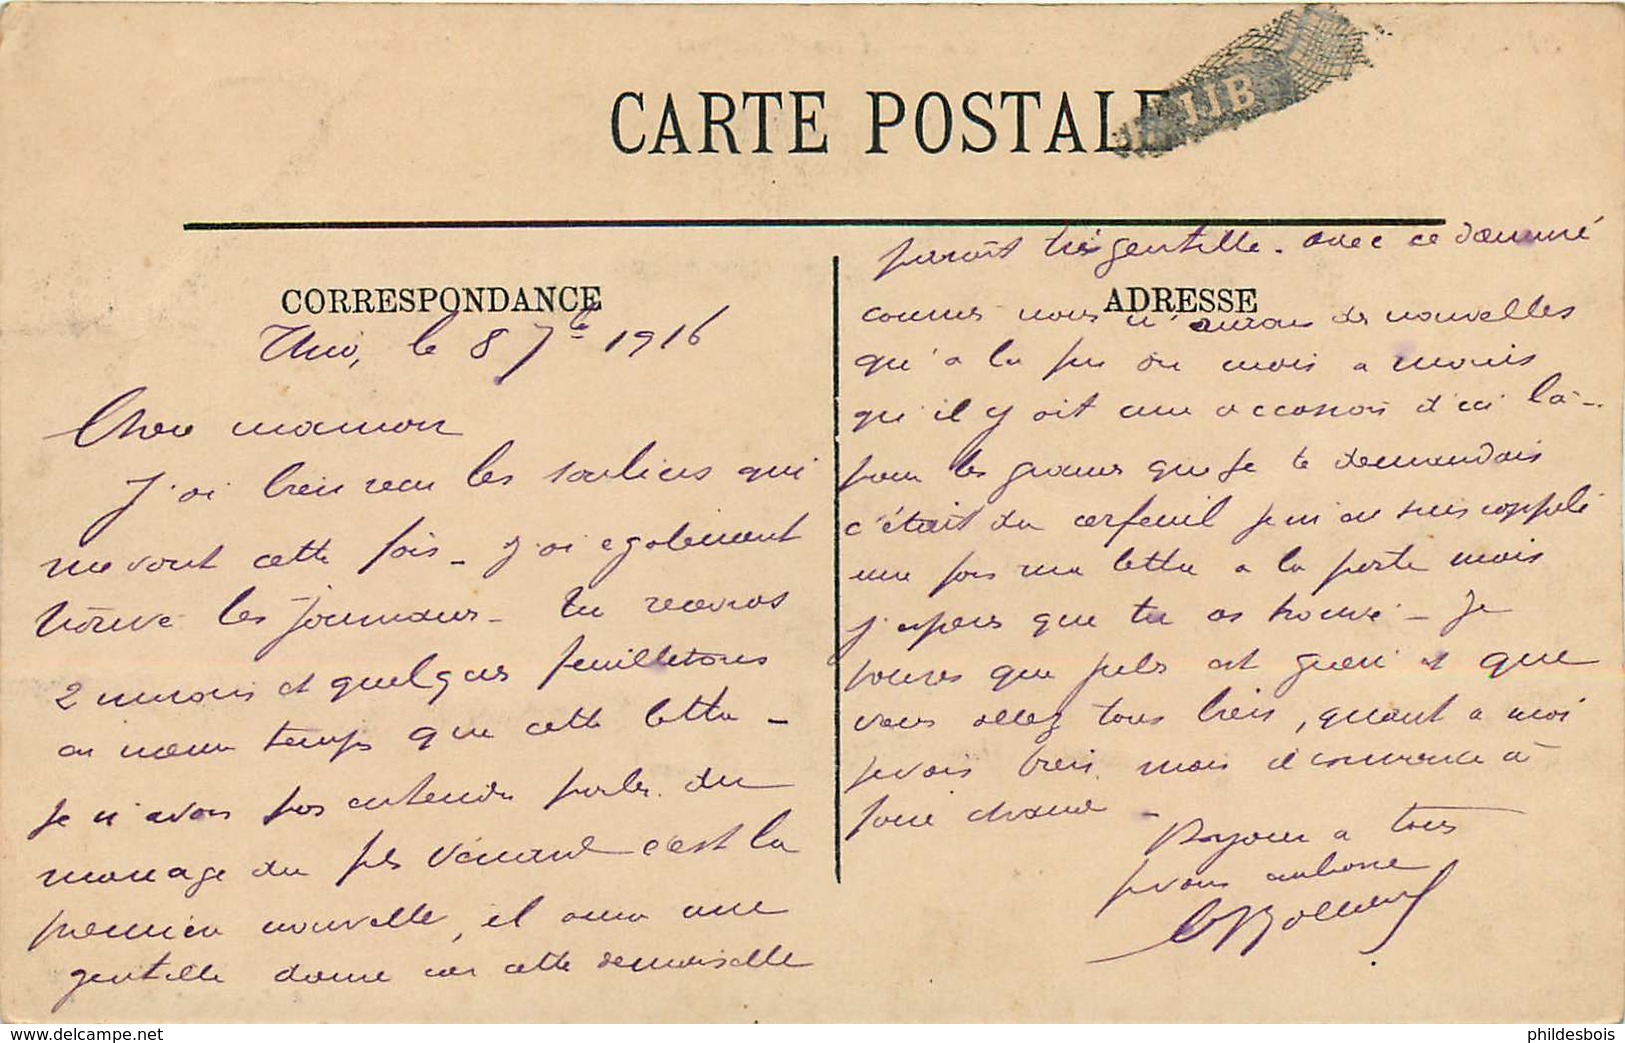 CARTE POSTALE
IIB
CORRESPONDANCE
ADRESSE
Thio, le 8 7bre 1916
Chère maman
J'ai bien reçu les souliers qui
me vont cette fois - J'ai egalement
trouvé les journaux - tu recevras
2 et quelques feuilletons
en même temps que cette lettre -
Je n'avais pas entendu parler du
mariage du fils c'est la
première nouvelle, il aura une
gentille dame car cette demoiselle
parait très gentille - avec ce damné
courrier nous n'aurons de nouvelles
qu'a la fin du mois a moins
qu'il y ait une occasion d'ici là -
pour les graines que je te demandais
c'était du cerfeuil je m'en suis rappelé
une fois ma lettre a la poste mais
j'espère que tu as trouvé - Je
pense que Jules est gueri et que
vous allez tous bien, quant a moi
je vais bien mais il commence à
faire chaud -
Bonjour a tous
je vous embrasse